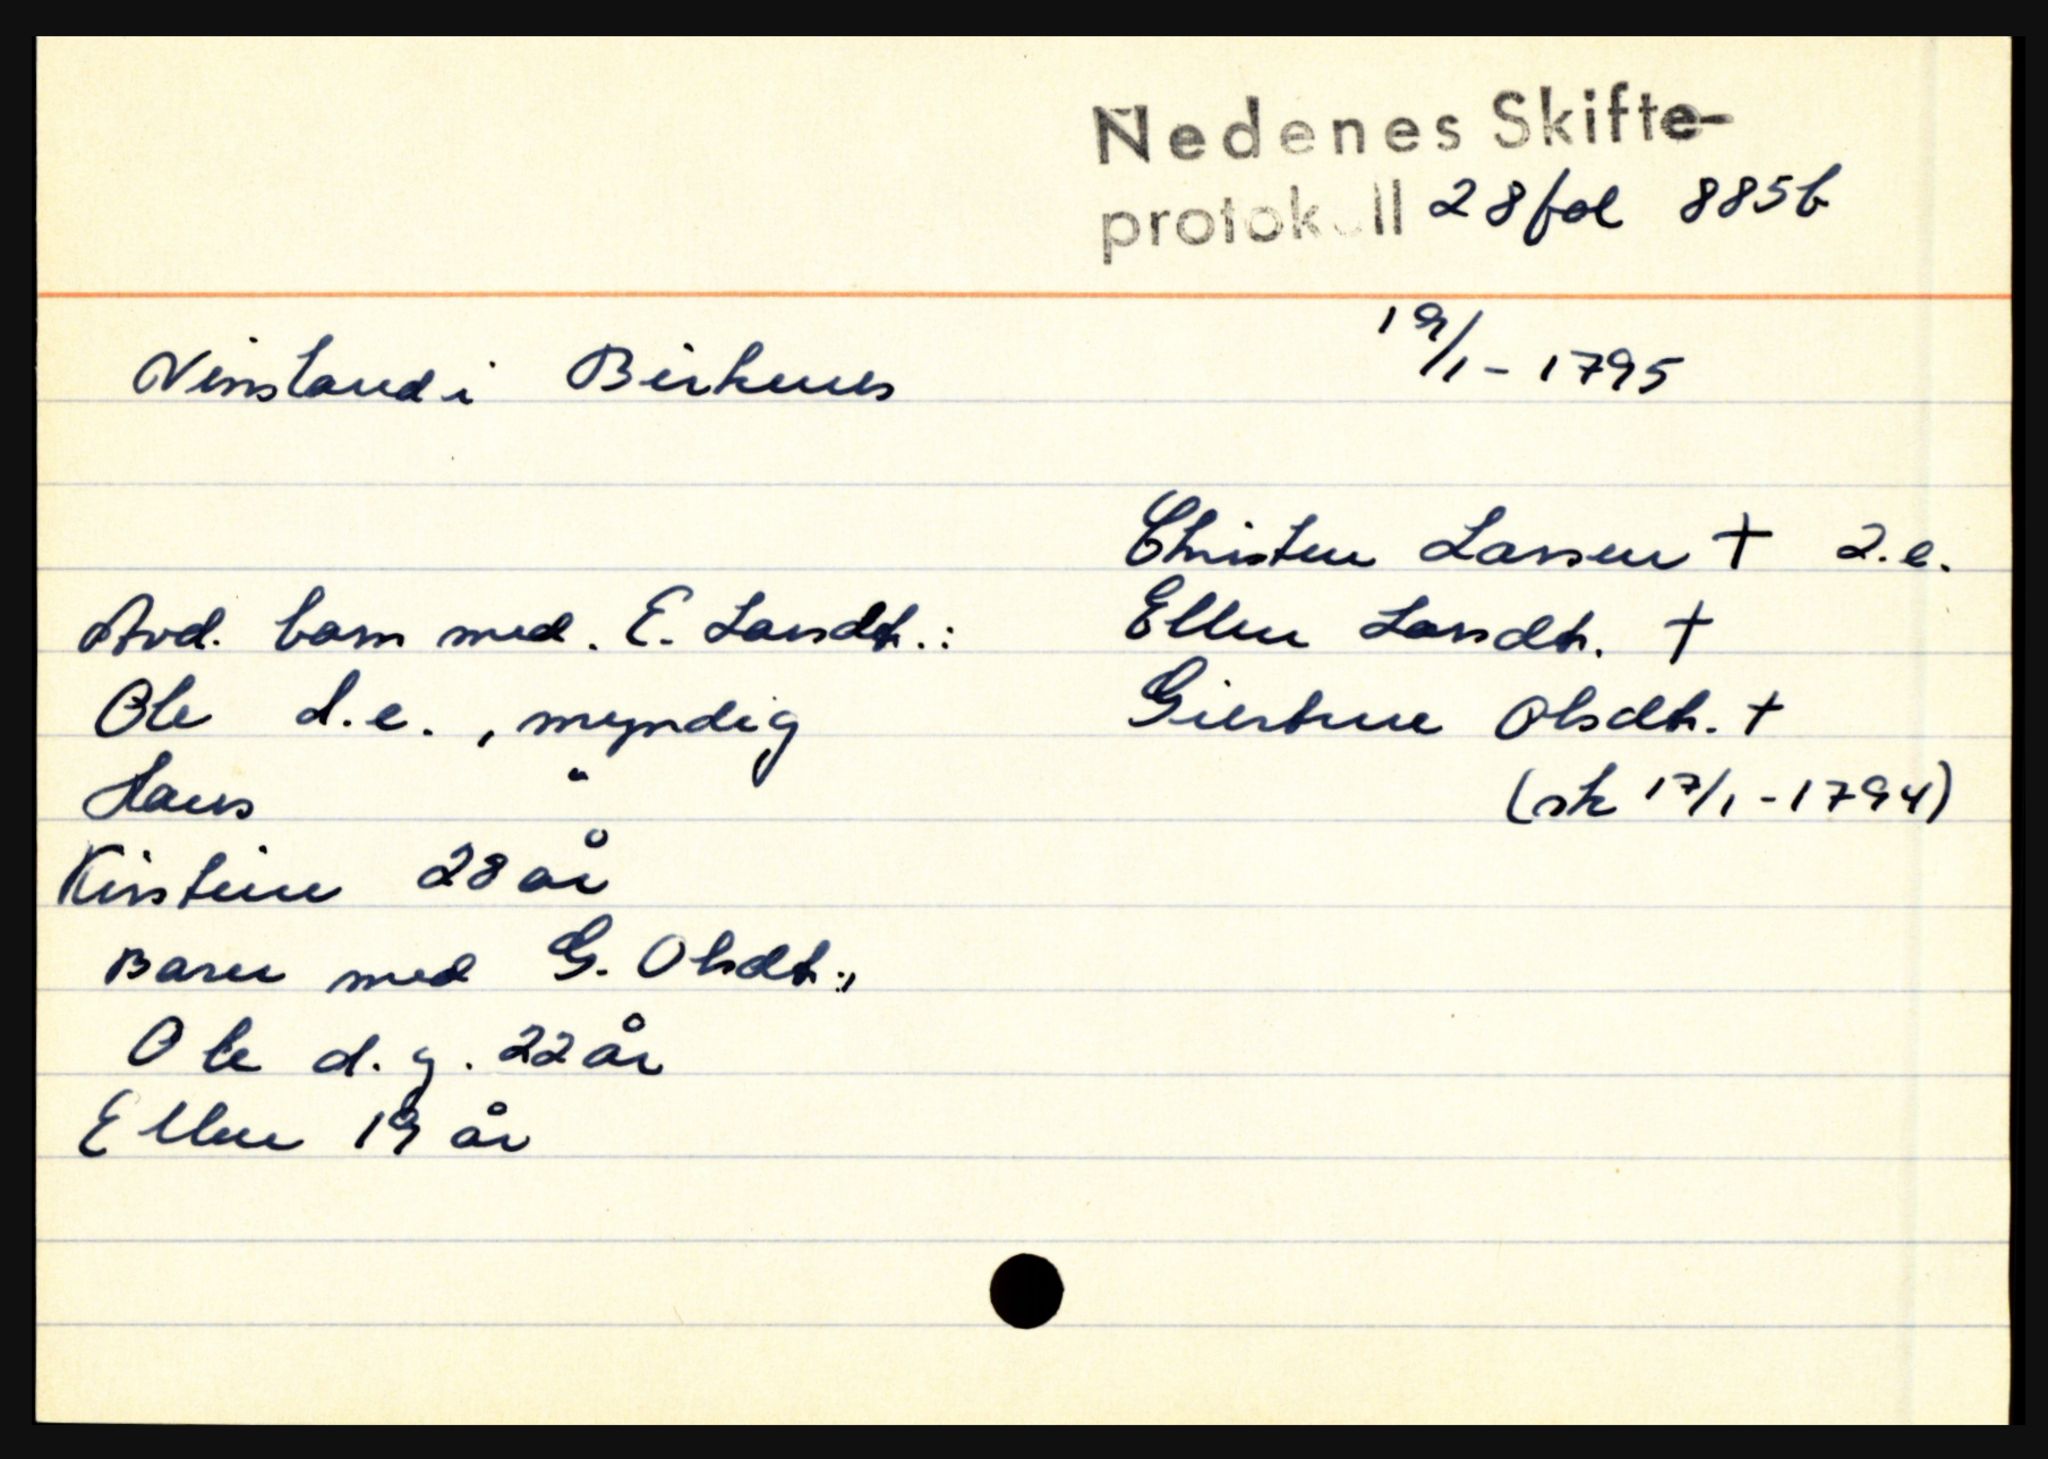 Nedenes Skifte-
protokoll 28 fol 885b
19/1-1795
Vinsland i Birkenes
Christen Larsen † 2.e.
Avd. barn med. E. Larsdtr.:
Ellen Larsdtr. †
Ole d.e., myndig
Giertrue Olsdtr. †
Hans "
(sk 17/1-1794)
Kirstine 28 år
Barn med G. Olsdtr.,
Ole d.y. 22 år
Ellen 19 år